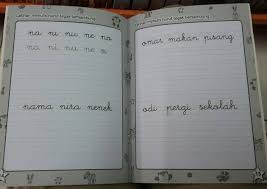 Latihan menulis huruf tegak bersambung
na ni nu ne no
na ni nu ne n
nama nira nenek
Latihan menulis huruf tegak bersambung
omar makan pisang
odi pergi sekolah